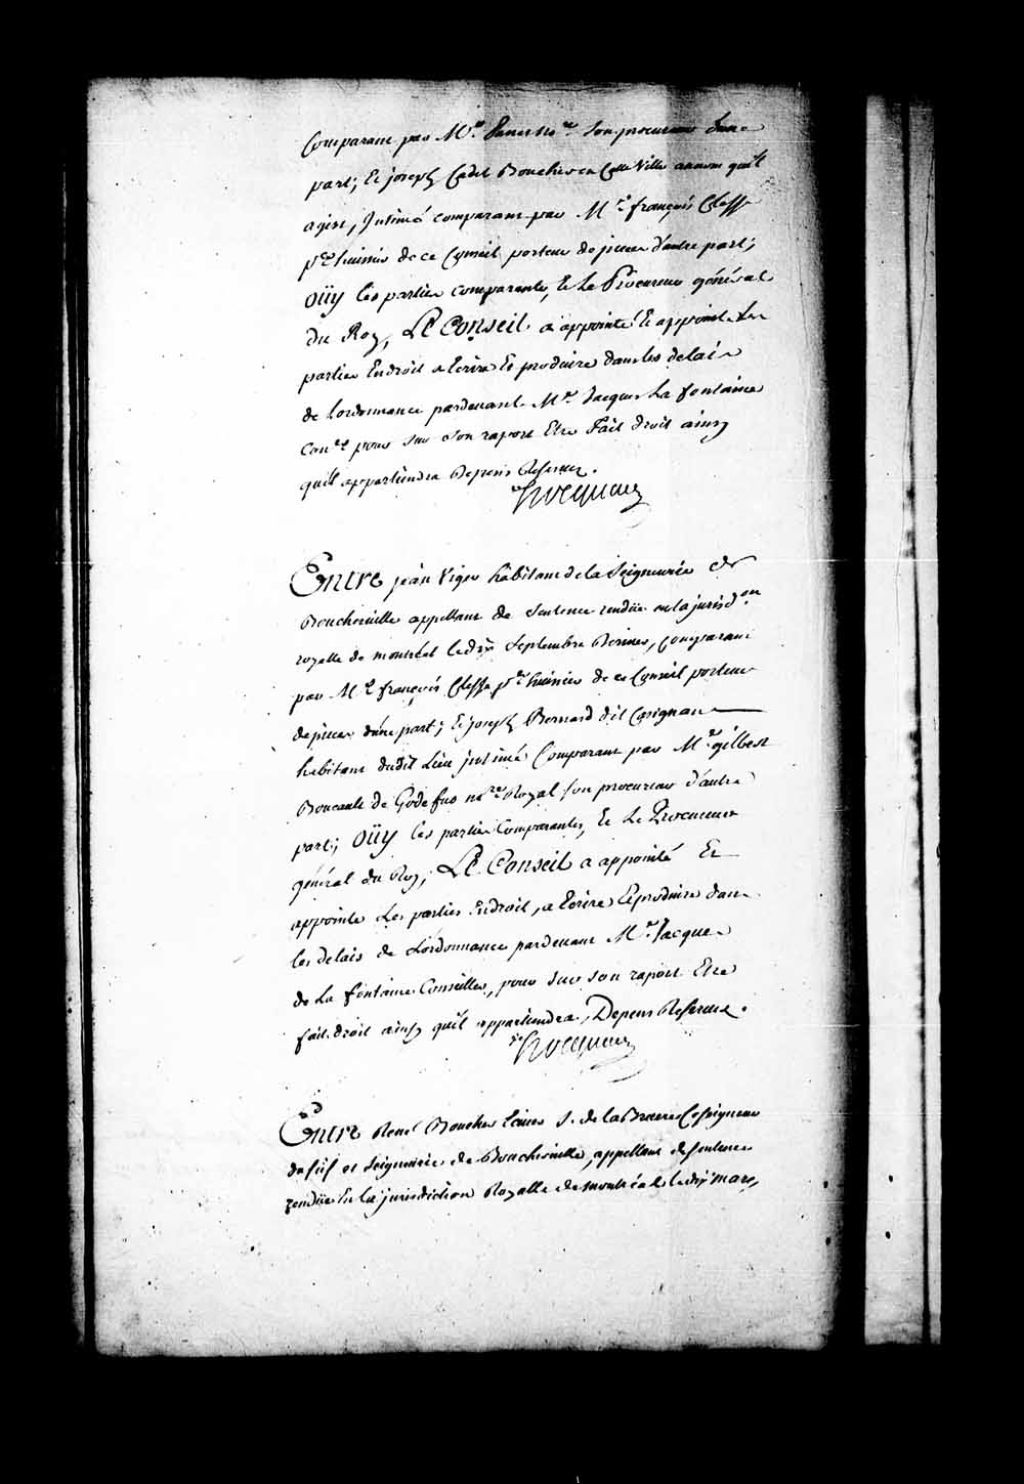 Comparant par Mre. Panet no.re son procureur d'une
part; Et joseph Cadet Boucher en Cette Ville au nom qu'il
agist, Intimé comparant par Mre. françois Clesse
p.er huissier de ce Conseil porteur de pieces d'autre part;
OÜY les parties comparantes, Et Le Procureur général
du Roy, LE Conseil a appointé Et appointe les
parties En droit a Ecrire Et produire dans les delais
de Lordonnance pardevant Mre. Jacques La fontaine
con.er pour sur son raport Etre fait droit ainsy
quil appartiendra Depens Reservez.
Hocquart
Entre jean Viger habitant de la Seigneurie de
Boucherville appellant de sentence rendüe en la jurisd.on
royalle de montréal le dix Septembre Dernier, comparant
par Mre. françois Clesse p.er huissier de ce Conseil porteur
de pieces d'une part; Et joseph Bernard dit Carignan
habitant dudit Lieu jntimé Comparant par Mre. gilbert
Boucault de Godefus no.re Royal son procureur d'autre
part; OÜY les parties Comparantes, Et Le Procureur
général du Roy, LE Conseil a appointé Et
appointe Les parties En droit, a Ecrire Et produire dans
les delais de L'ordonnance pardevant Mre. Jacques
de La fontaine Conseiller, pour sur son raport Etre
fait droit ainsy quil appartiendra, Depens Reservez.
Hocquart
Entre René Boucher Ecuier S. de la Bruere Coseigneur
du fief et Seigneurie de Boucherville, appellant de sentence
rendüe En La jurisdiction Royalle de montréal le dix mars,